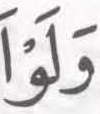 وَلَوْاَ